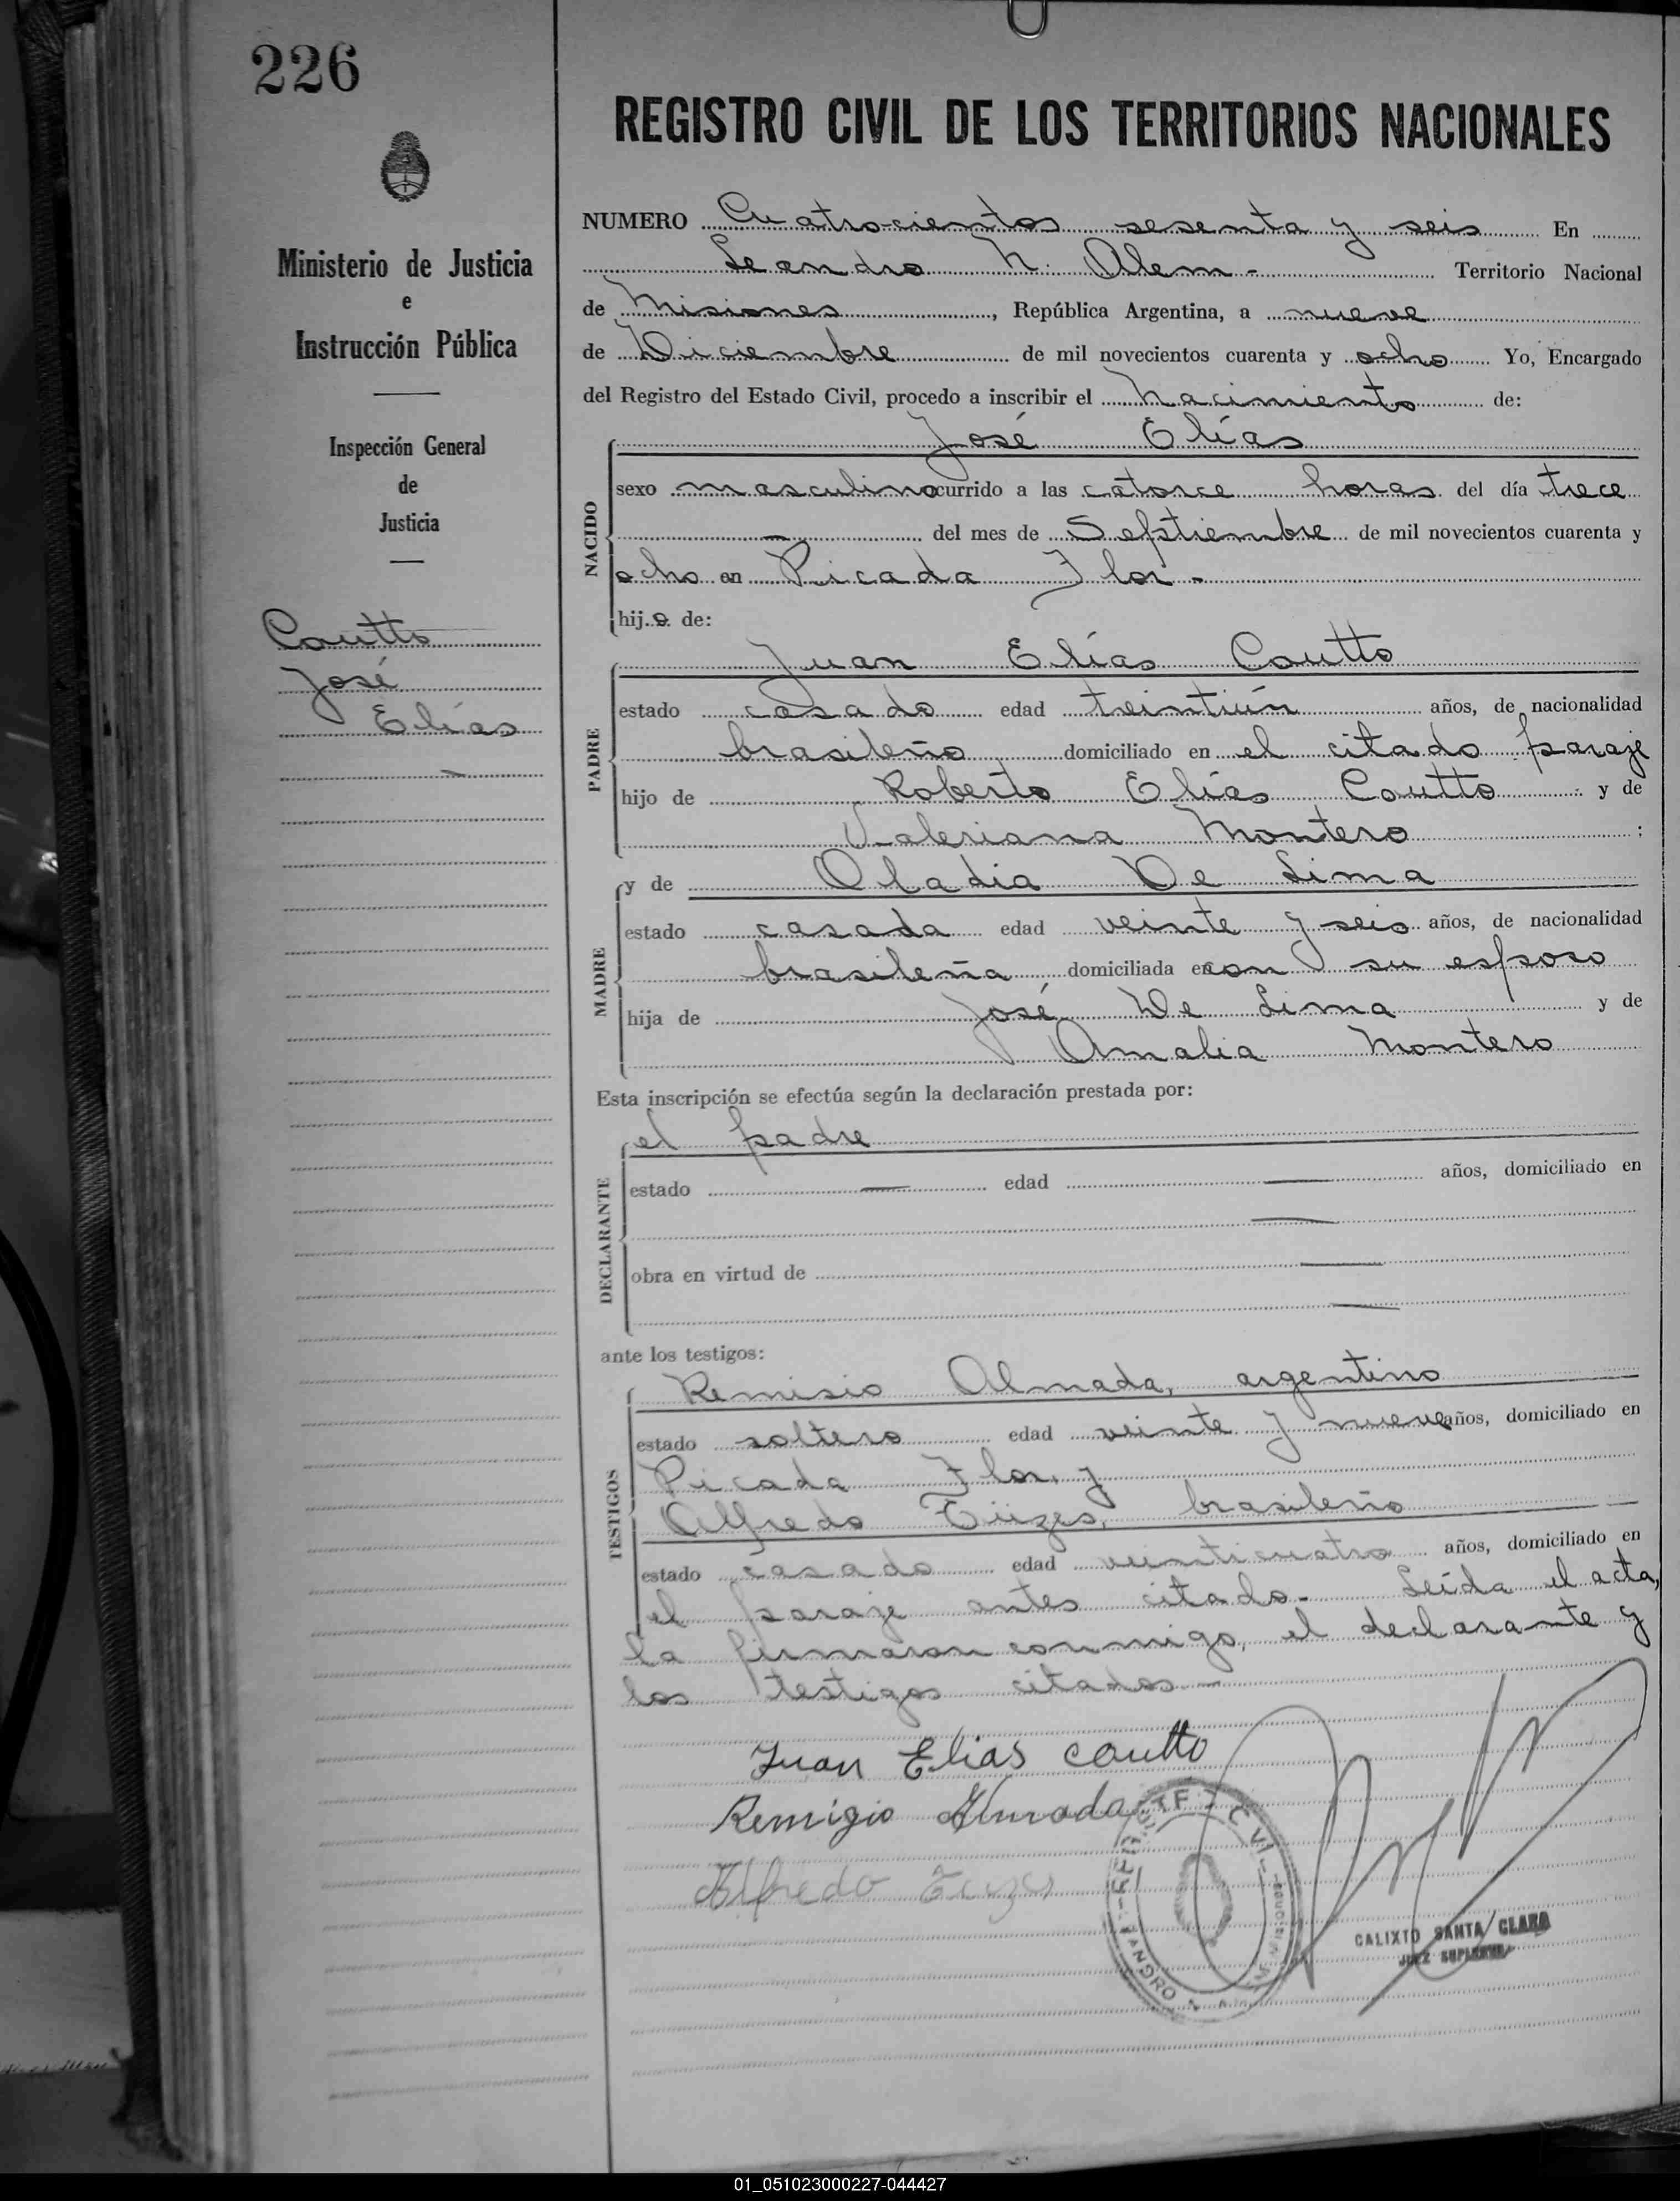 226
Ministerio de Justicia
e
Instrucción Pública
Inspección General
de
Justicia
Coutto
José
Elías
REGISTRO CIVIL DE LOS TERRITORIOS NACIONALES
NUMERO Cuatrocientos sesenta y seis En
Leandro N. Alem - Territorio Nacional
de Misiones, República Argentina, a nueve
de Diciembre de mil novecientos cuarenta y ocho Yo, Encargado
del Registro del Estado Civil, procedo a inscribir el nacimiento de:
José Elías
NACIDO
sexo masculino ocurrido a las catorce horas del día trece
del mes de Septiembre de mil novecientos cuarenta y
ocho en Picada Flor -
hijo de:
Juan Elías Coutto
PADRE
estado casado edad treintiún años, de nacionalidad
brasileño domiciliado en el citado paraje
hijo de Roberto Elías Coutto y de
Valeriana Montero ;
y de Oladia De Lima
MADRE
estado casada edad veinte y seis años, de nacionalidad
brasileña domiciliada en con su esposo
hija de José De Lima y de
Amalia Montero
Esta inscripción se efectúa según la declaración prestada por:
el padre
DECLARANTE
estado — edad — años, domiciliado en
obra en virtud de
ante los testigos:
Remisio Almada, argentino
TESTIGOS
estado soltero edad veinte y nueve años, domiciliado en
Picada Flor, y
Alfredo brasileño
estado casado edad veinticuatro años, domiciliado en
el paraje antes citado - Leída el acta,
la firmaron conmigo, el declarante y
los testigos citados -
Juan Elias Coutto
Remigio Almada
Alfredo
CALIXTO SANTA CLARA
JUEZ SUPLENTE
01_051023000227-044427